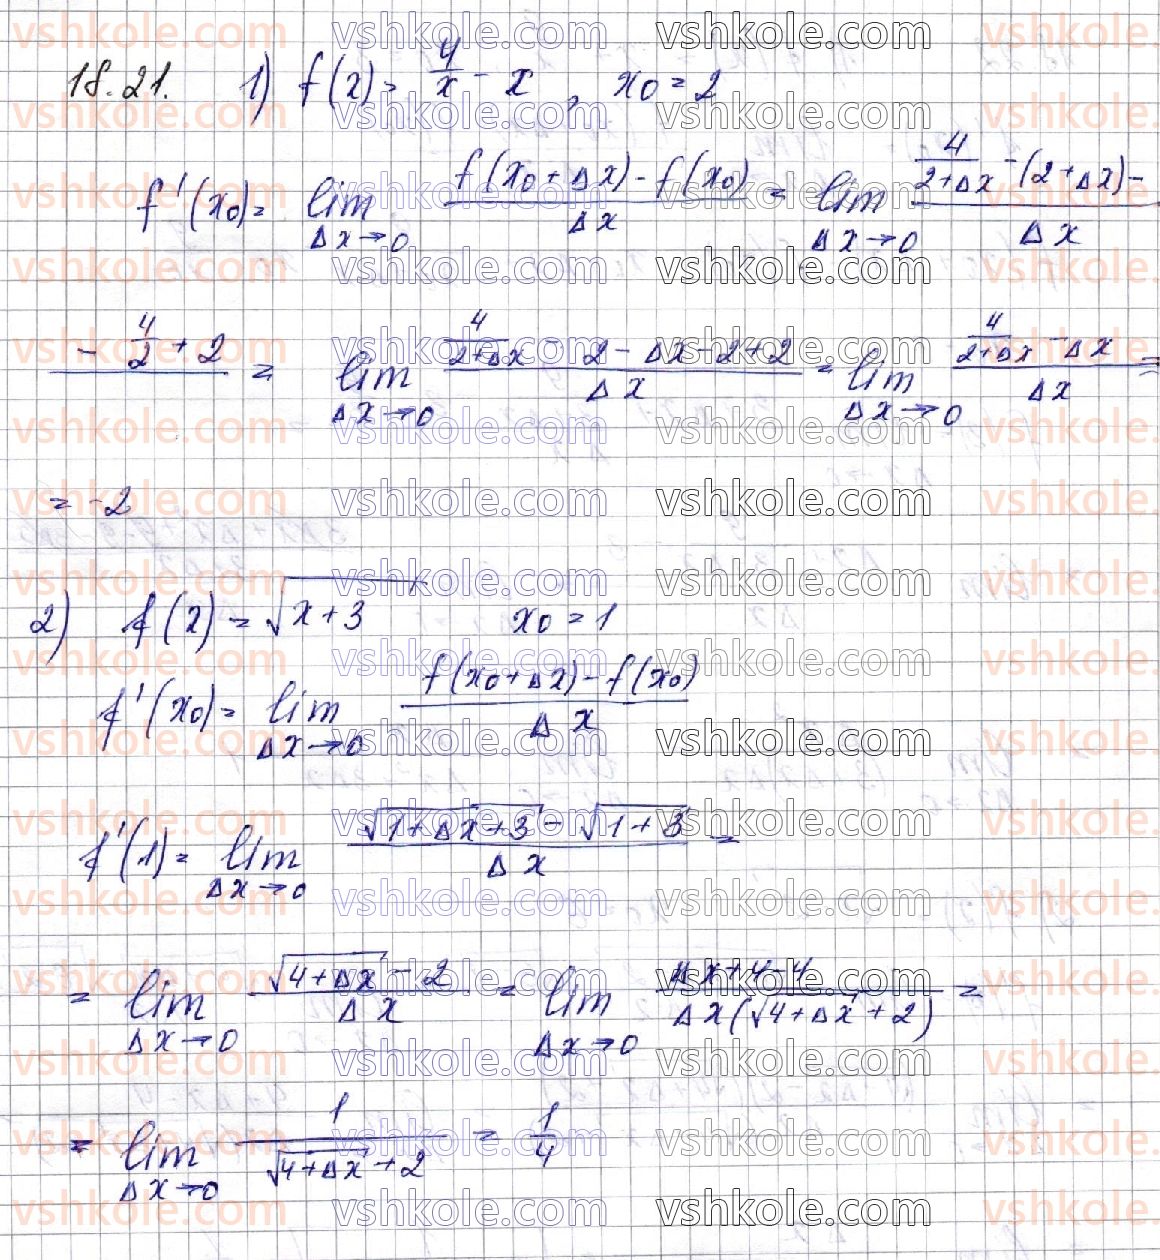 18.21. 1) f(x) = 4/x - x, x0 = 2
f'(x0) = lim Δx→0 (f(x0+Δx) - f(x0))/Δx = lim Δx→0 (4/(2+Δx) - (2+Δx) -
- 4/2 + 2)/Δx = lim Δx→0 (4/(2+Δx) - 2 - Δx - 2 + 2)/Δx = lim Δx→0 (4/(2+Δx) - Δx)/Δx =
= -2
2) f(x) = √(x+3) x0 = 1
f'(x0) = lim Δx→0 (f(x0+Δx) - f(x0))/Δx
f'(1) = lim Δx→0 (√(1+Δx+3) - √(1+3))/Δx =
= lim Δx→0 (√(4+Δx) - 2)/Δx = lim Δx→0 (Δx+4-4)/(Δx(√(4+Δx)+2)) =
= lim Δx→0 1/(√(4+Δx)+2) = 1/4
vshkole.com